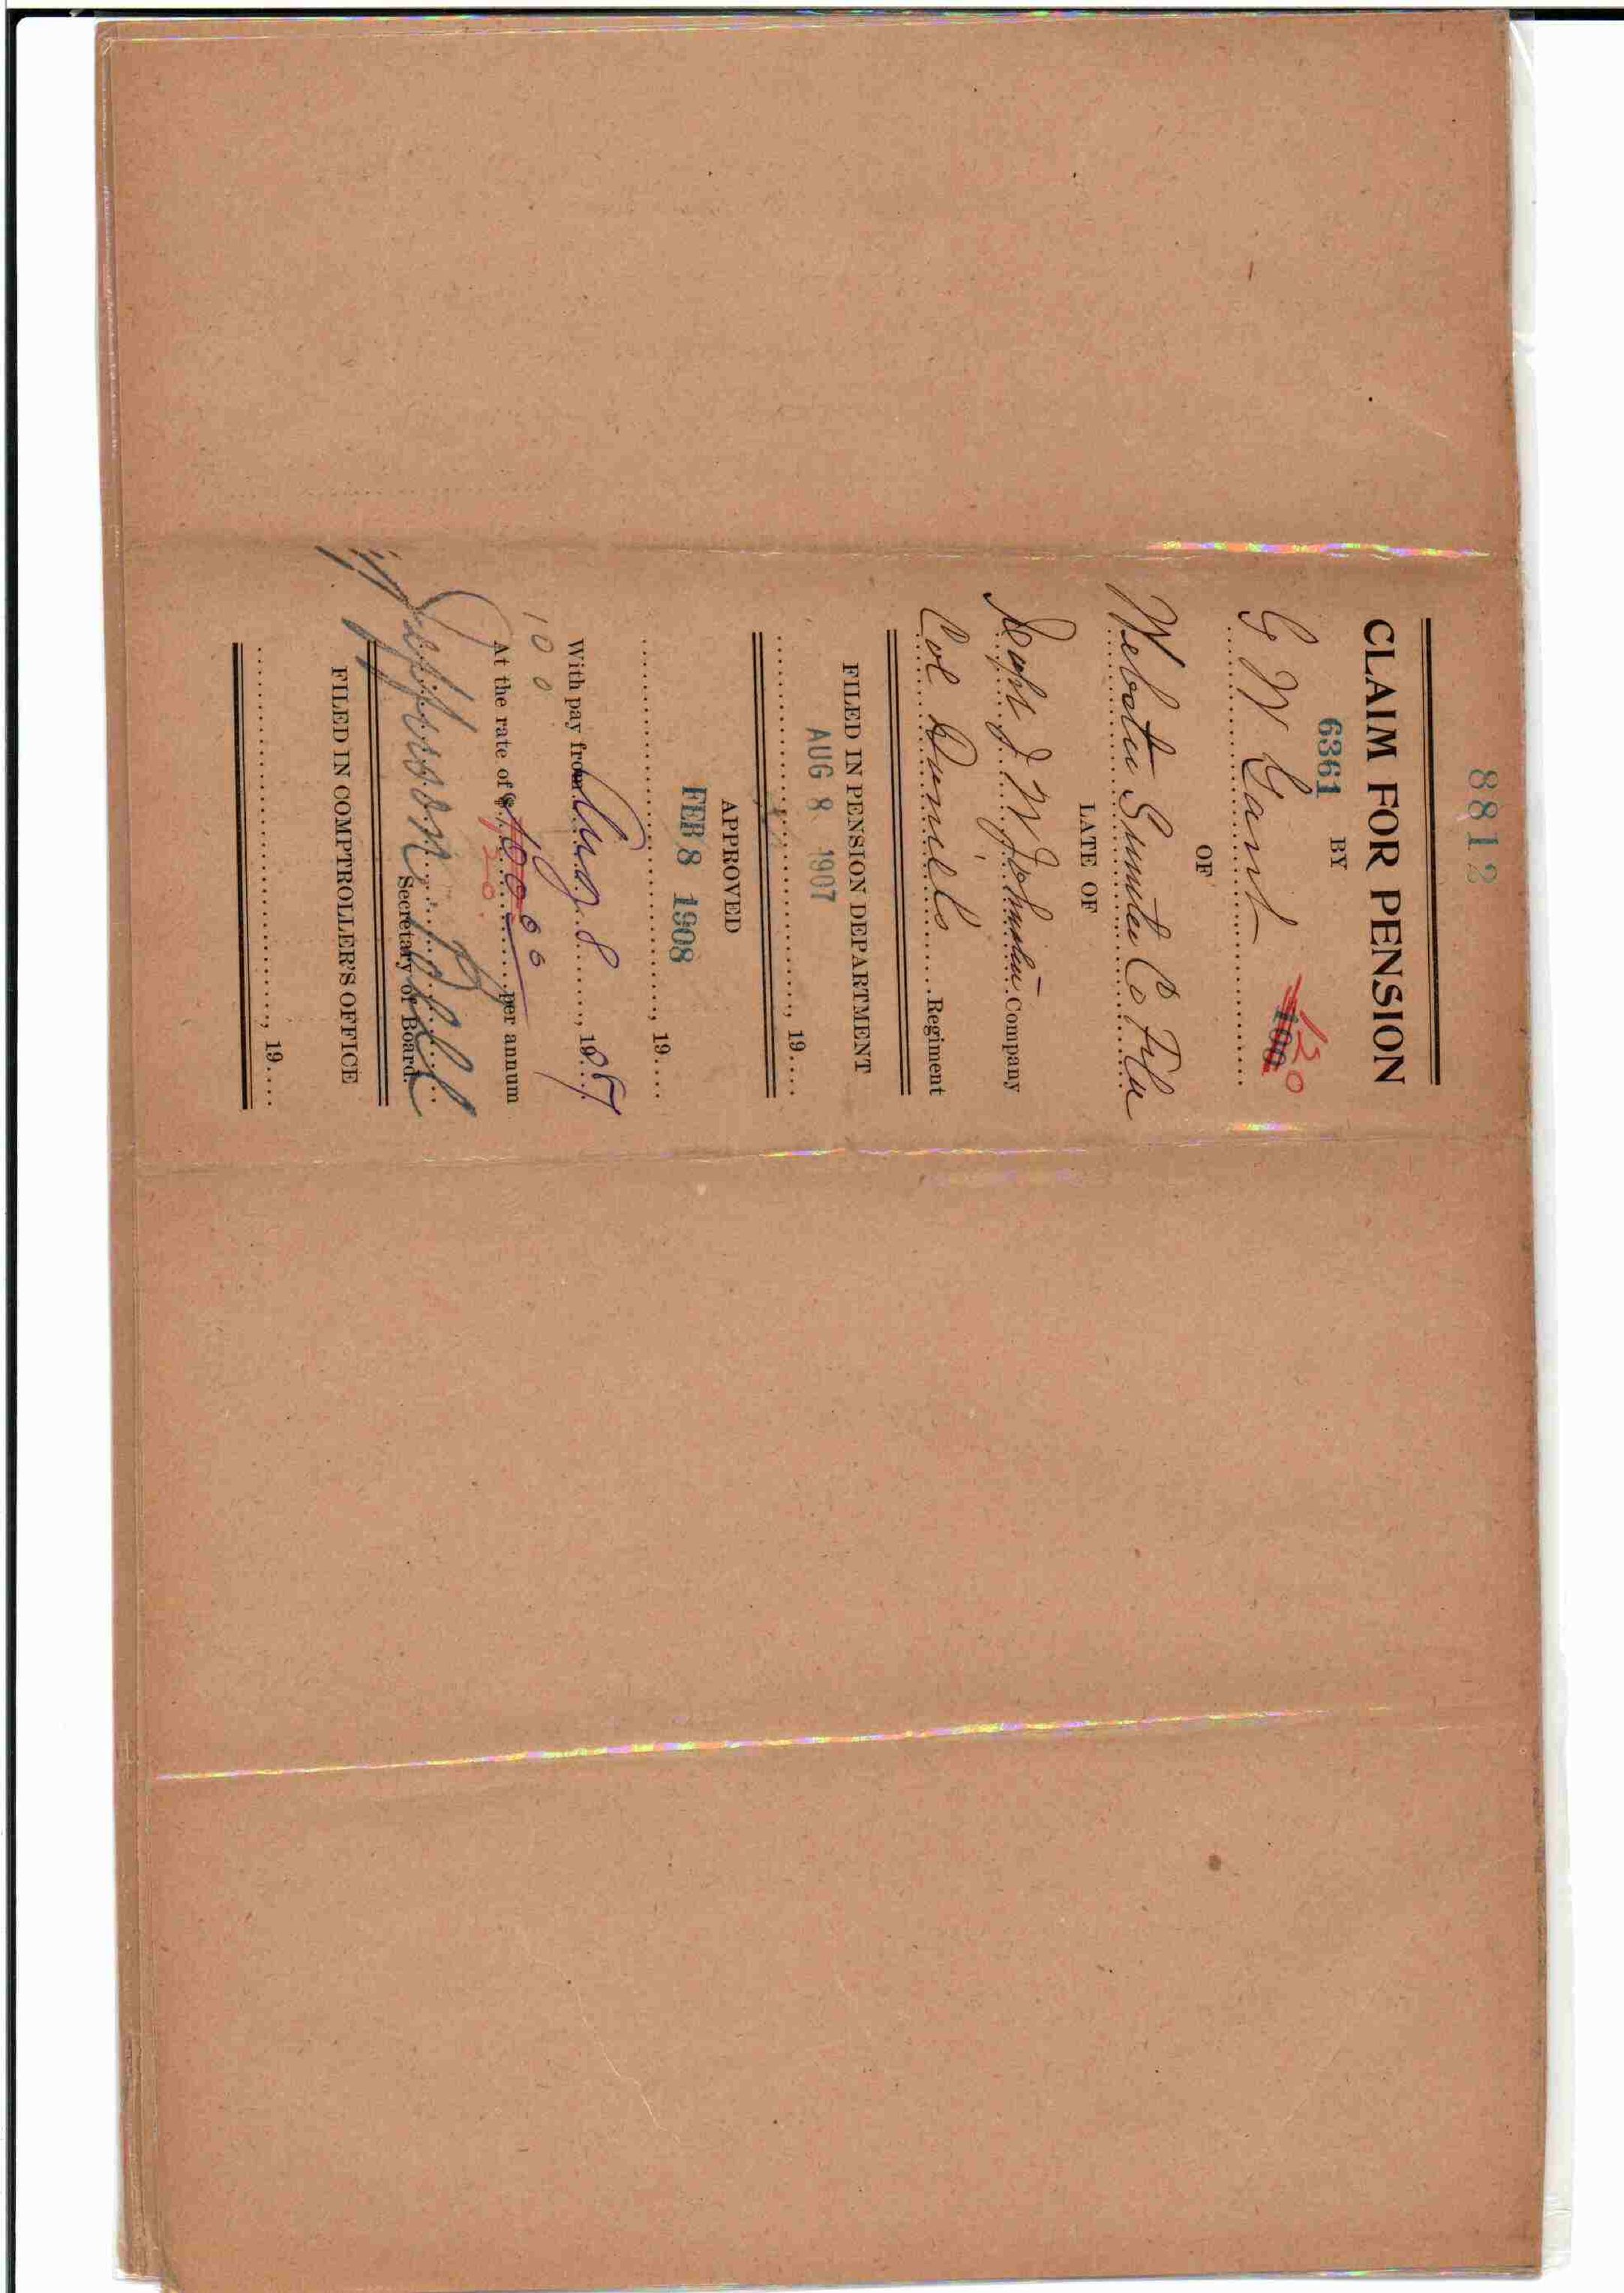 8812
CLAIM FOR PENSION
6361 BY
120
100
G W Gant
OF
Webster Sumter Co Fla
LATE OF
Capt J M Johnston Company
Col Daniels Regiment
FILED IN PENSION DEPARTMENT
AUG 8 1907
, 19....
APPROVED
FEB 8 1908
, 19....
With pay from Aug 8, 1907
100
At the rate of $100 00 per annum
120
Jefferson B
Secretary of Board.
FILED IN COMPTROLLER'S OFFICE
, 19....